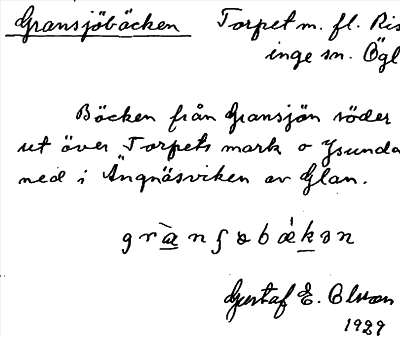 Gransjöbäcken Torpet m. fl. Ris
inge sn. Ögl
Bäcken från Gransjön söder
ut över Torpets mark o Ysunda
ned i Ängnäsviken av Glan.
Gustaf E. Olsson
1929